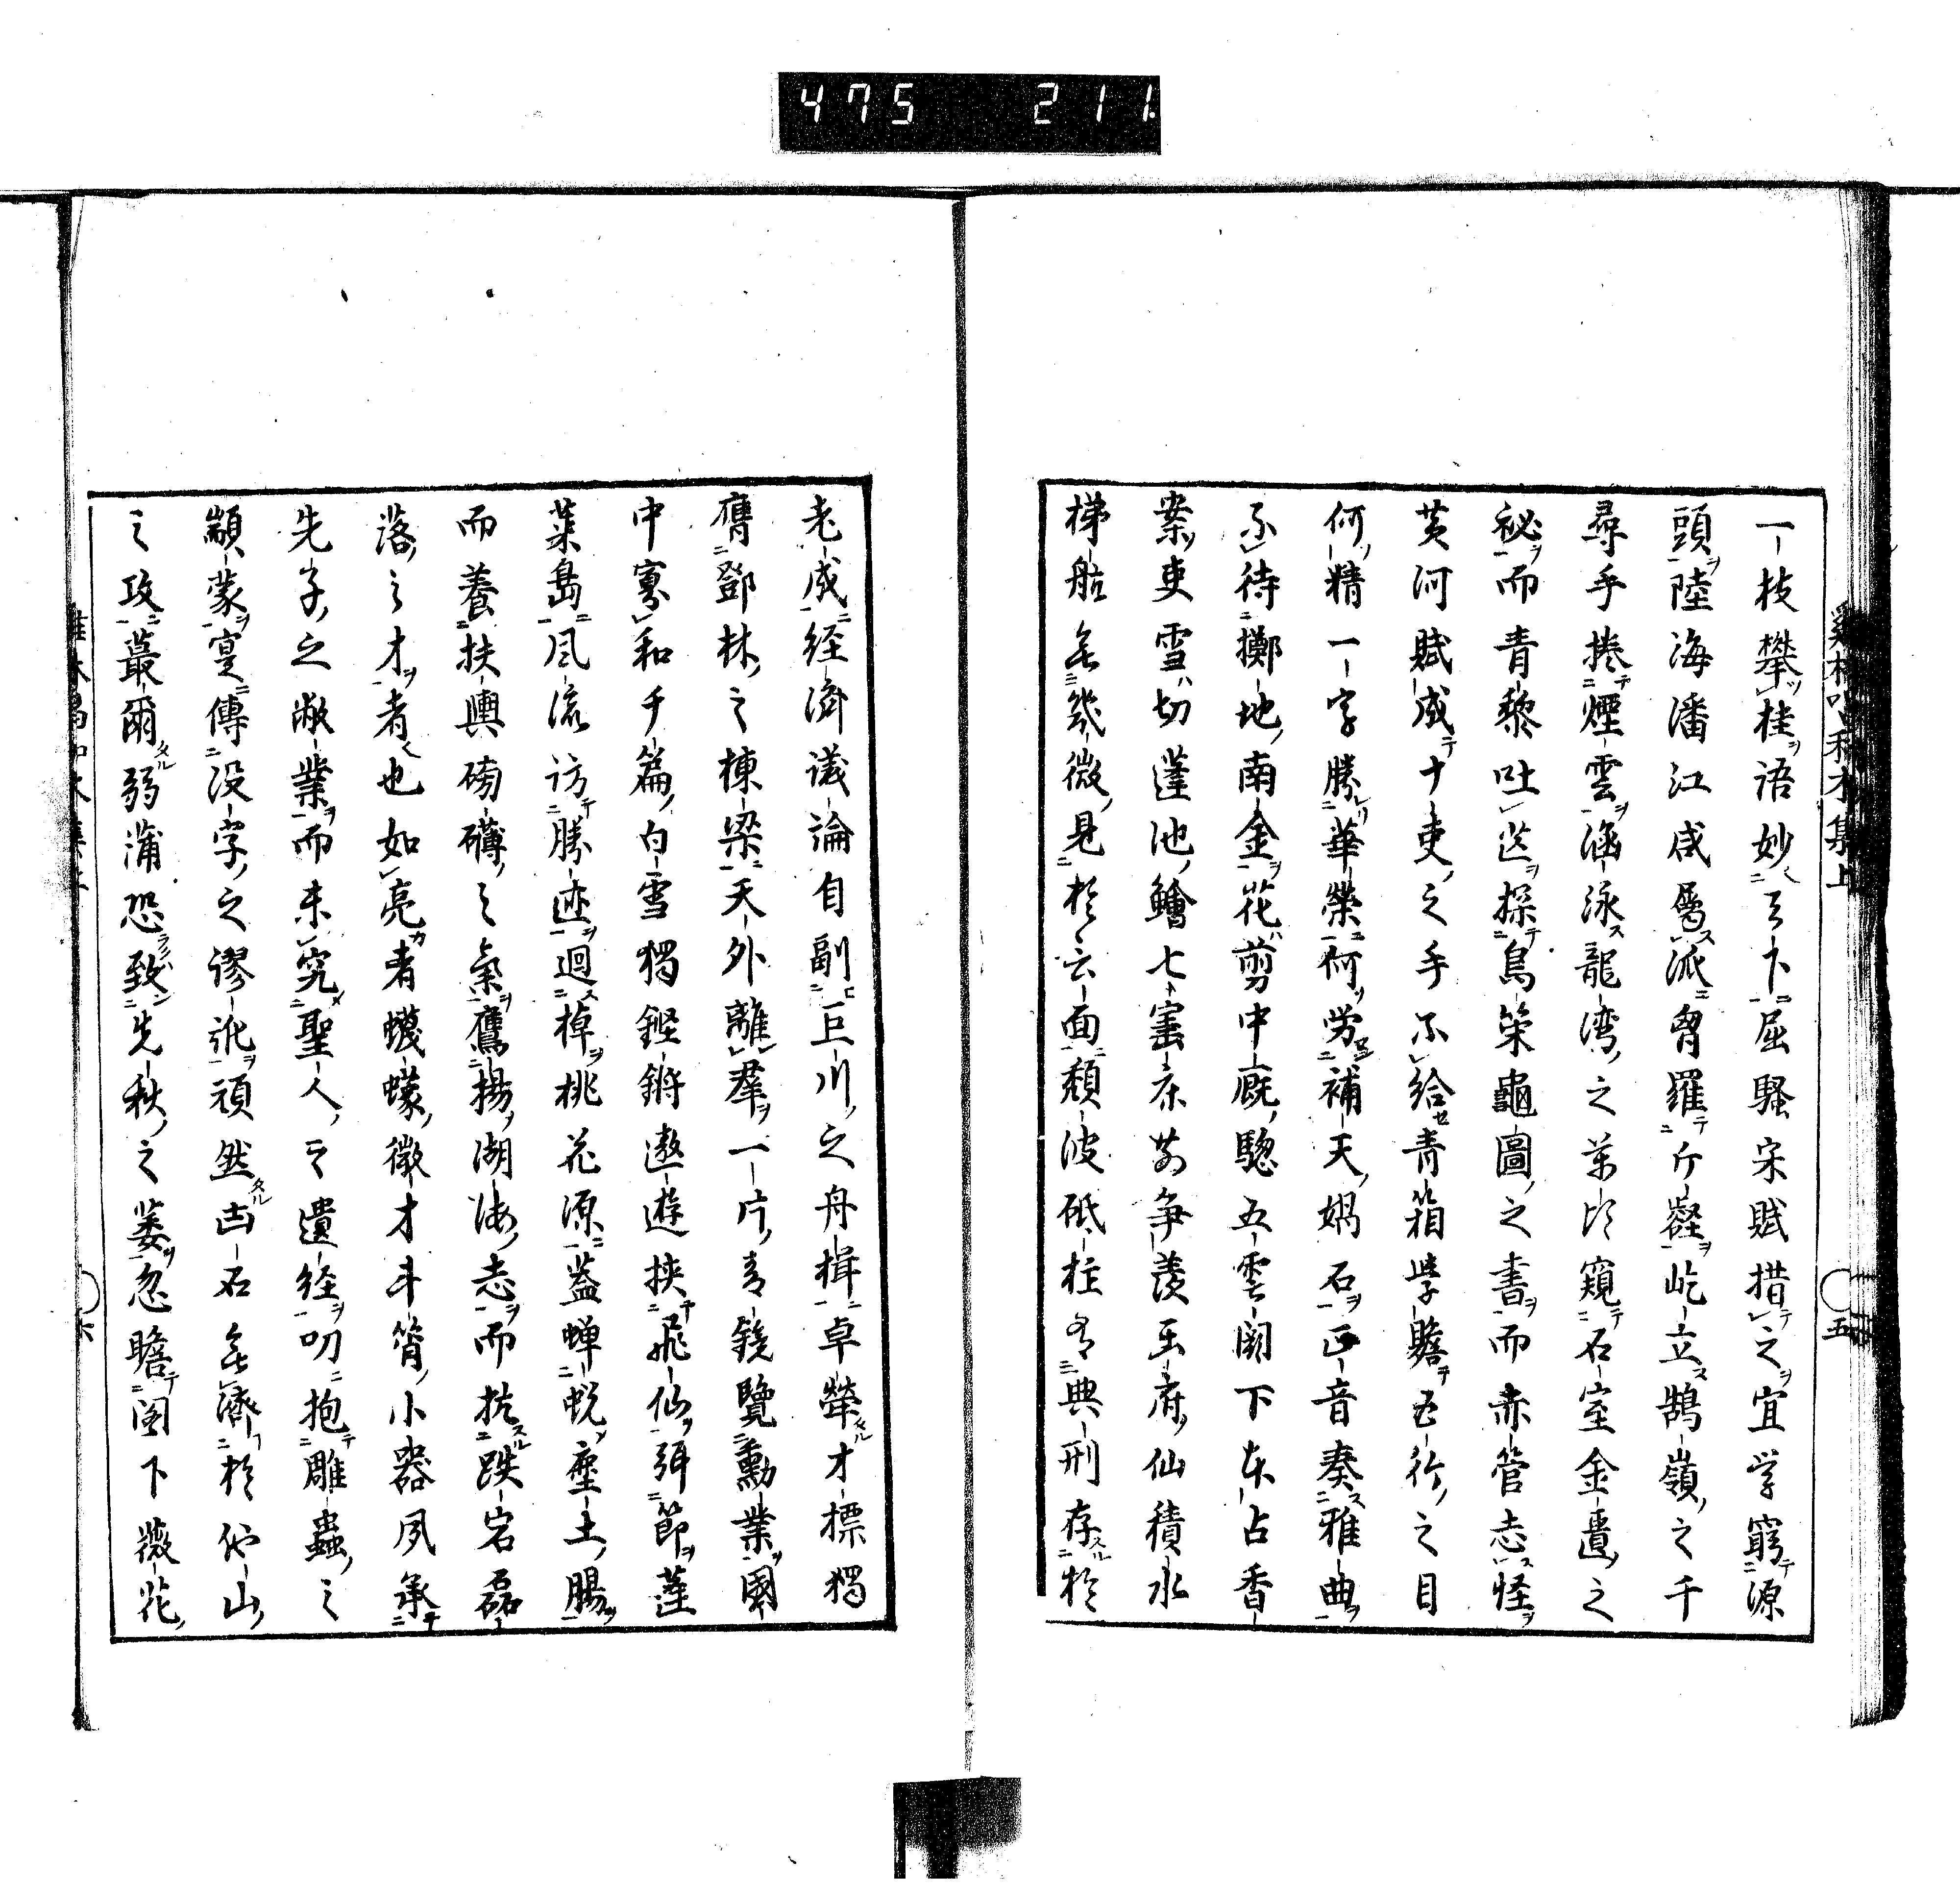 475 211
一枝攀桂語妙天下屈騷宋賦措之宜学窮源
頭陸海潘江咸屬派胷羅斤壑屹立鵠嶺之千
尋手捲煙雲涵泳龍湾之萬頃窺石室金匱之
秘而青藜吐送探鳥策龜圖之書而赤管志怪
黄河賦成十吏之手不給青箱学贍五行之目
何精一字勝華榮何労補天媧石正音奏雅曲
不待擲地南金花剪中廐驄五雲閣下本占香
案吏雪切蓬池鱠七寶床前争羨玉府仙積水
梯航無幾微見於言面頽波砥柱有典刑存於
老成経濟議論自副巨川之舟楫卓犖才標獨
膺鄧林之棟梁天外離羣一片青錢覽勳業國
中寡和千篇白雪獨鏗鏘遨遊挟飛仙弭節蓬
菜島風流訪勝迹迴棹桃花源蓋蟬蛻塵土腸
而養扶輿磅礴之氣鷹揚湖海志而抗跌宕磊
落之才者也如亮者蠛蠓微才斗筲小器夙承
先子之敝業而未究聖人之遺経叨抱雕蟲之
顓蒙寔傳没字之謬訛頑然凷石無濟於他山
之攻蕞爾弱蒲恐致先秋之萎忽瞻閣下薇花
雞林唱和
集上
五
六